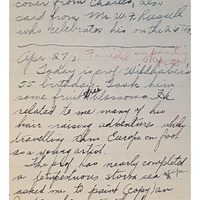 cover from Charles, also
card from Mr W.F. Russell
who celebrates his on the 20th
Apr. 27/3.
Today is prof. Wildhaber's
55th birthday. Took him
some fruit blossoms. He
related to me many of his
hair-raising adventures while
travelling thru Europe on foot
as a young artist.
The prof has nearly completed
a tempestuous storm sea
asked me to paint (copy) an